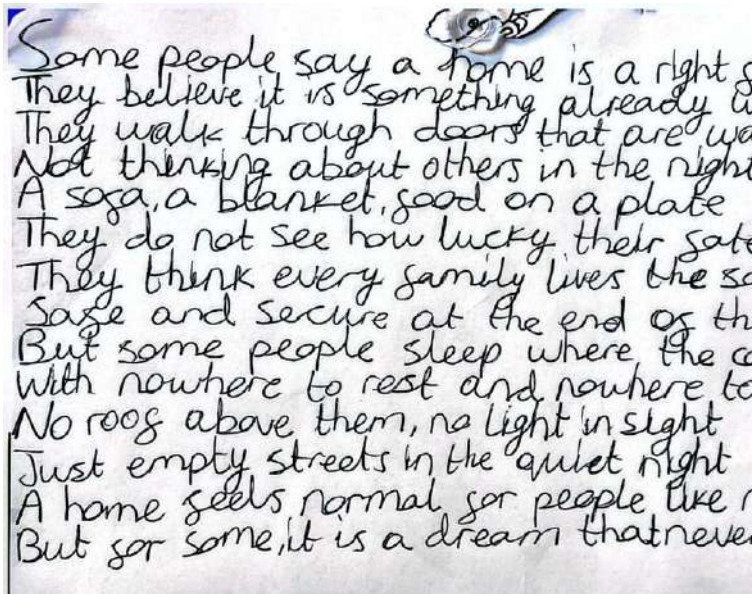 Some people say a home is a right
They believe it is something already
They walk through doors that are
Not thinking about others in the night
A sofa, a blanket, food on a plate
They do not see how lucky their
They think every family lives the
Safe and secure at the end of
But some people sleep where the
With nowhere to rest and nowhere
No roof above them, no light in sight
Just empty streets in the quiet night
A home feels normal for people like
But for some, it is a dream that never